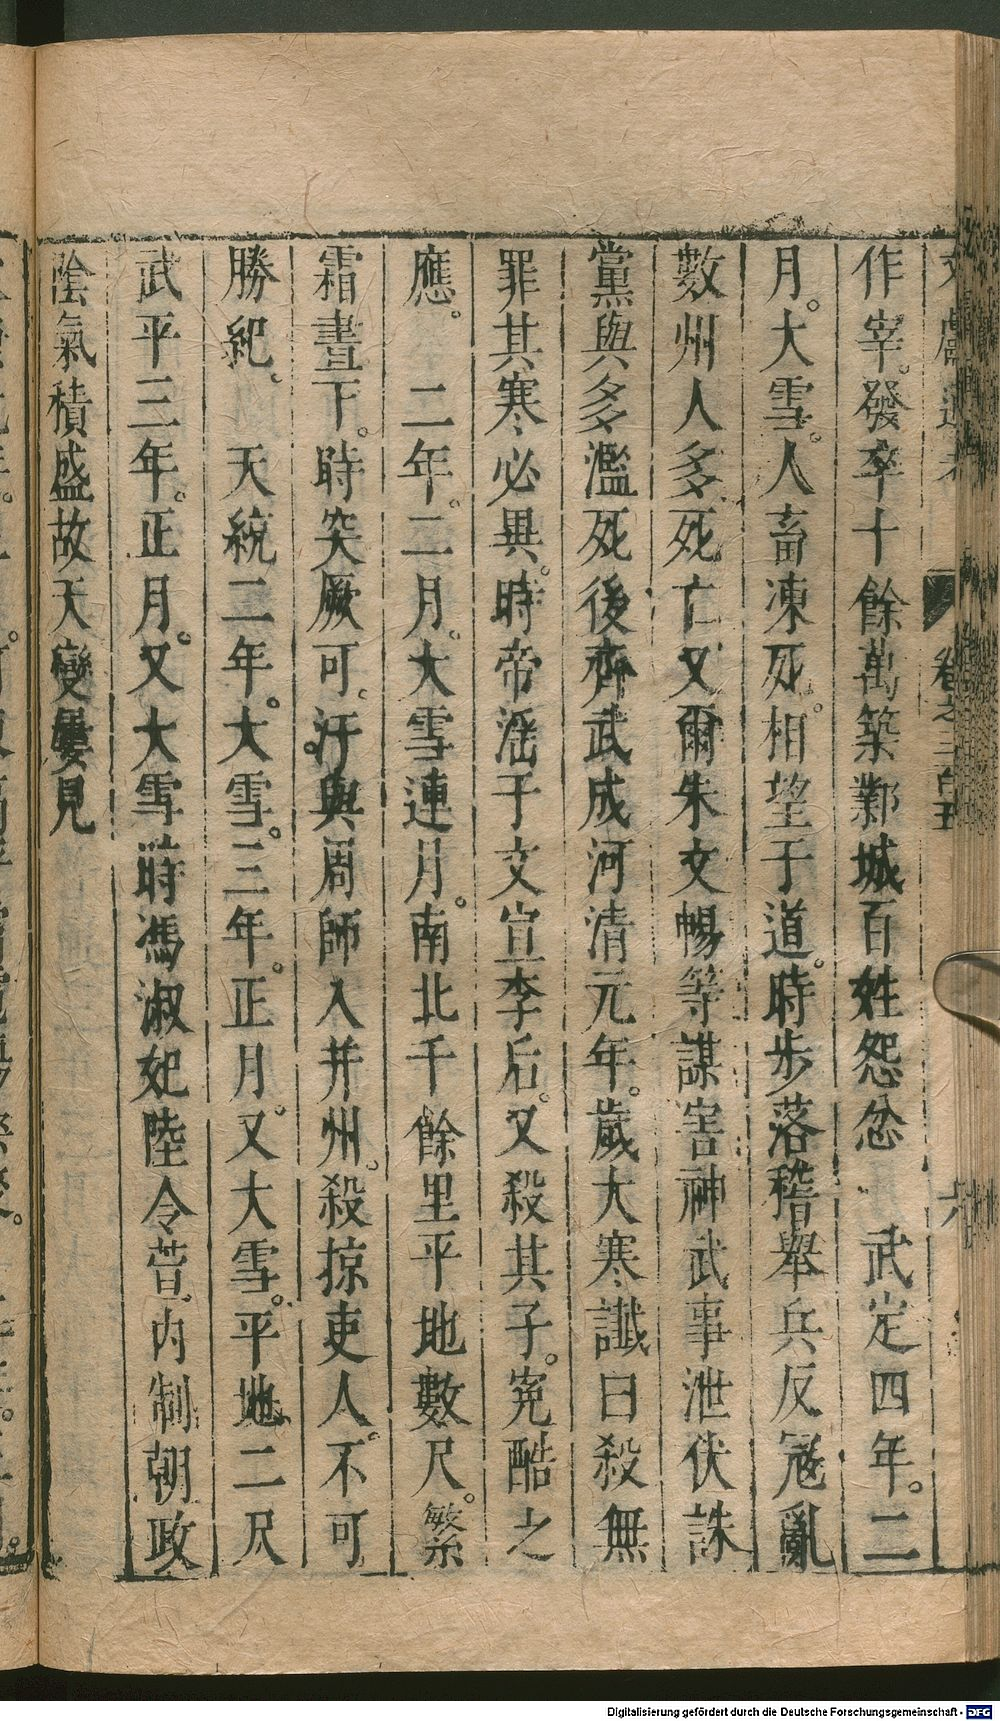 作宰。發卒十餘萬築鄴城百姓怨忿　武定四年。二
月。大雪。人畜凍死。相望于道。時步落稽舉兵反冦亂
數州人多死亡又爾朱文暢等謀害神武事泄伏誅
黨與多濫死後齊武成河清元年。歲大寒讖曰殺無
罪其寒必異。時帝淫于文宣李后。又殺其子。冤酷之
應。　二年。二月。大雪連月。南北千餘里平地數尺。繁
霜晝下。時突厥可。汗與周師入并州。殺掠吏人。不可
勝紀。　天統二年。大雪。三年。正月。又大雪。平地二尺
武平三年。正月。又大雪時馮淑妃陸令萱。内制朝政
陰氣積盛故天變屢見
卷之三百五
六
Digitalisierung gefördert durch die Deutsche Forschungsgemeinschaft - DFG